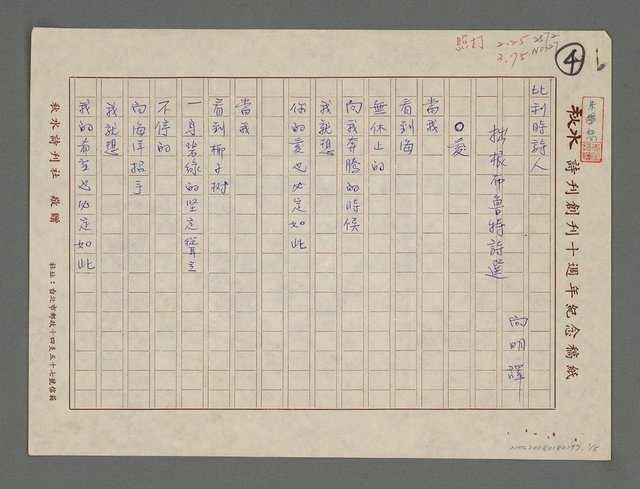 照打 2.25
3.75
4
秋水詩刊創刊十週年紀念稿紙
比利時詩人
拙根布魯特詩選
向明譯
○愛
當我
看到海
無休止的
向我奔騰的時候
我就想
你的愛也必定如此
當我
看到椰子樹
一身碧綠的堅定聳立
不停的
向海洋招手
我就想
我的希望也必定如此
秋水詩刊社 敬贈
社址：台北市郵政十四支五十七號信箱
NML20080180197 1/5